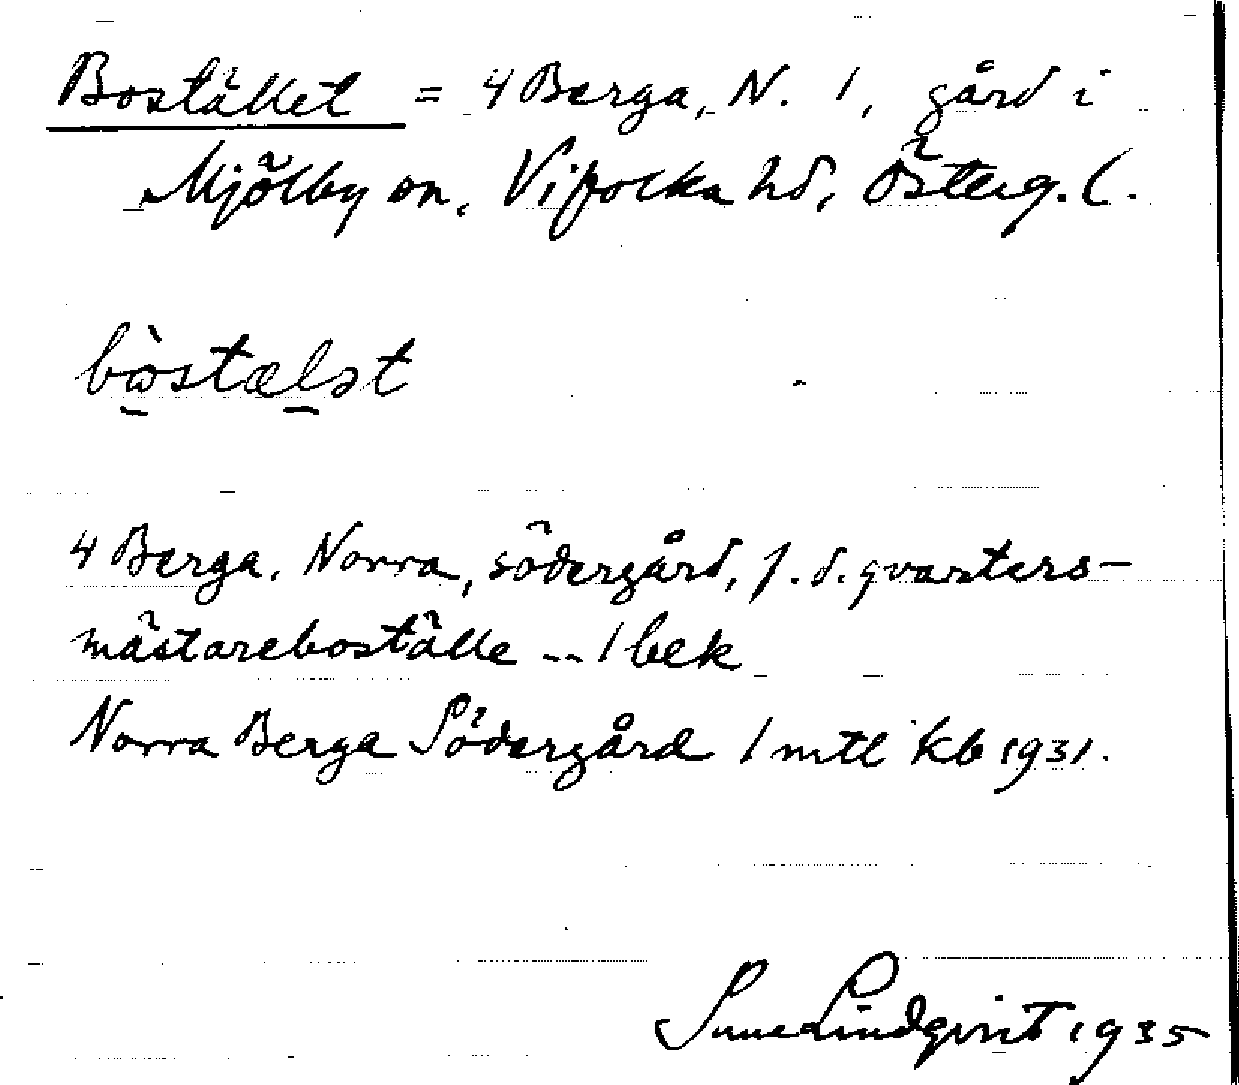 Bostället = 4 Berga, N. 1, gård i
Mjölby sn, Vifolka hd, Österg. l.
bòstælət
4 Berga, Norra, södergård, f. d. qvarters-
mästareboställe -- 1 bek
Norra Berga Södergård 1 mtl kb 1931.
Sune Lindqvist 1935